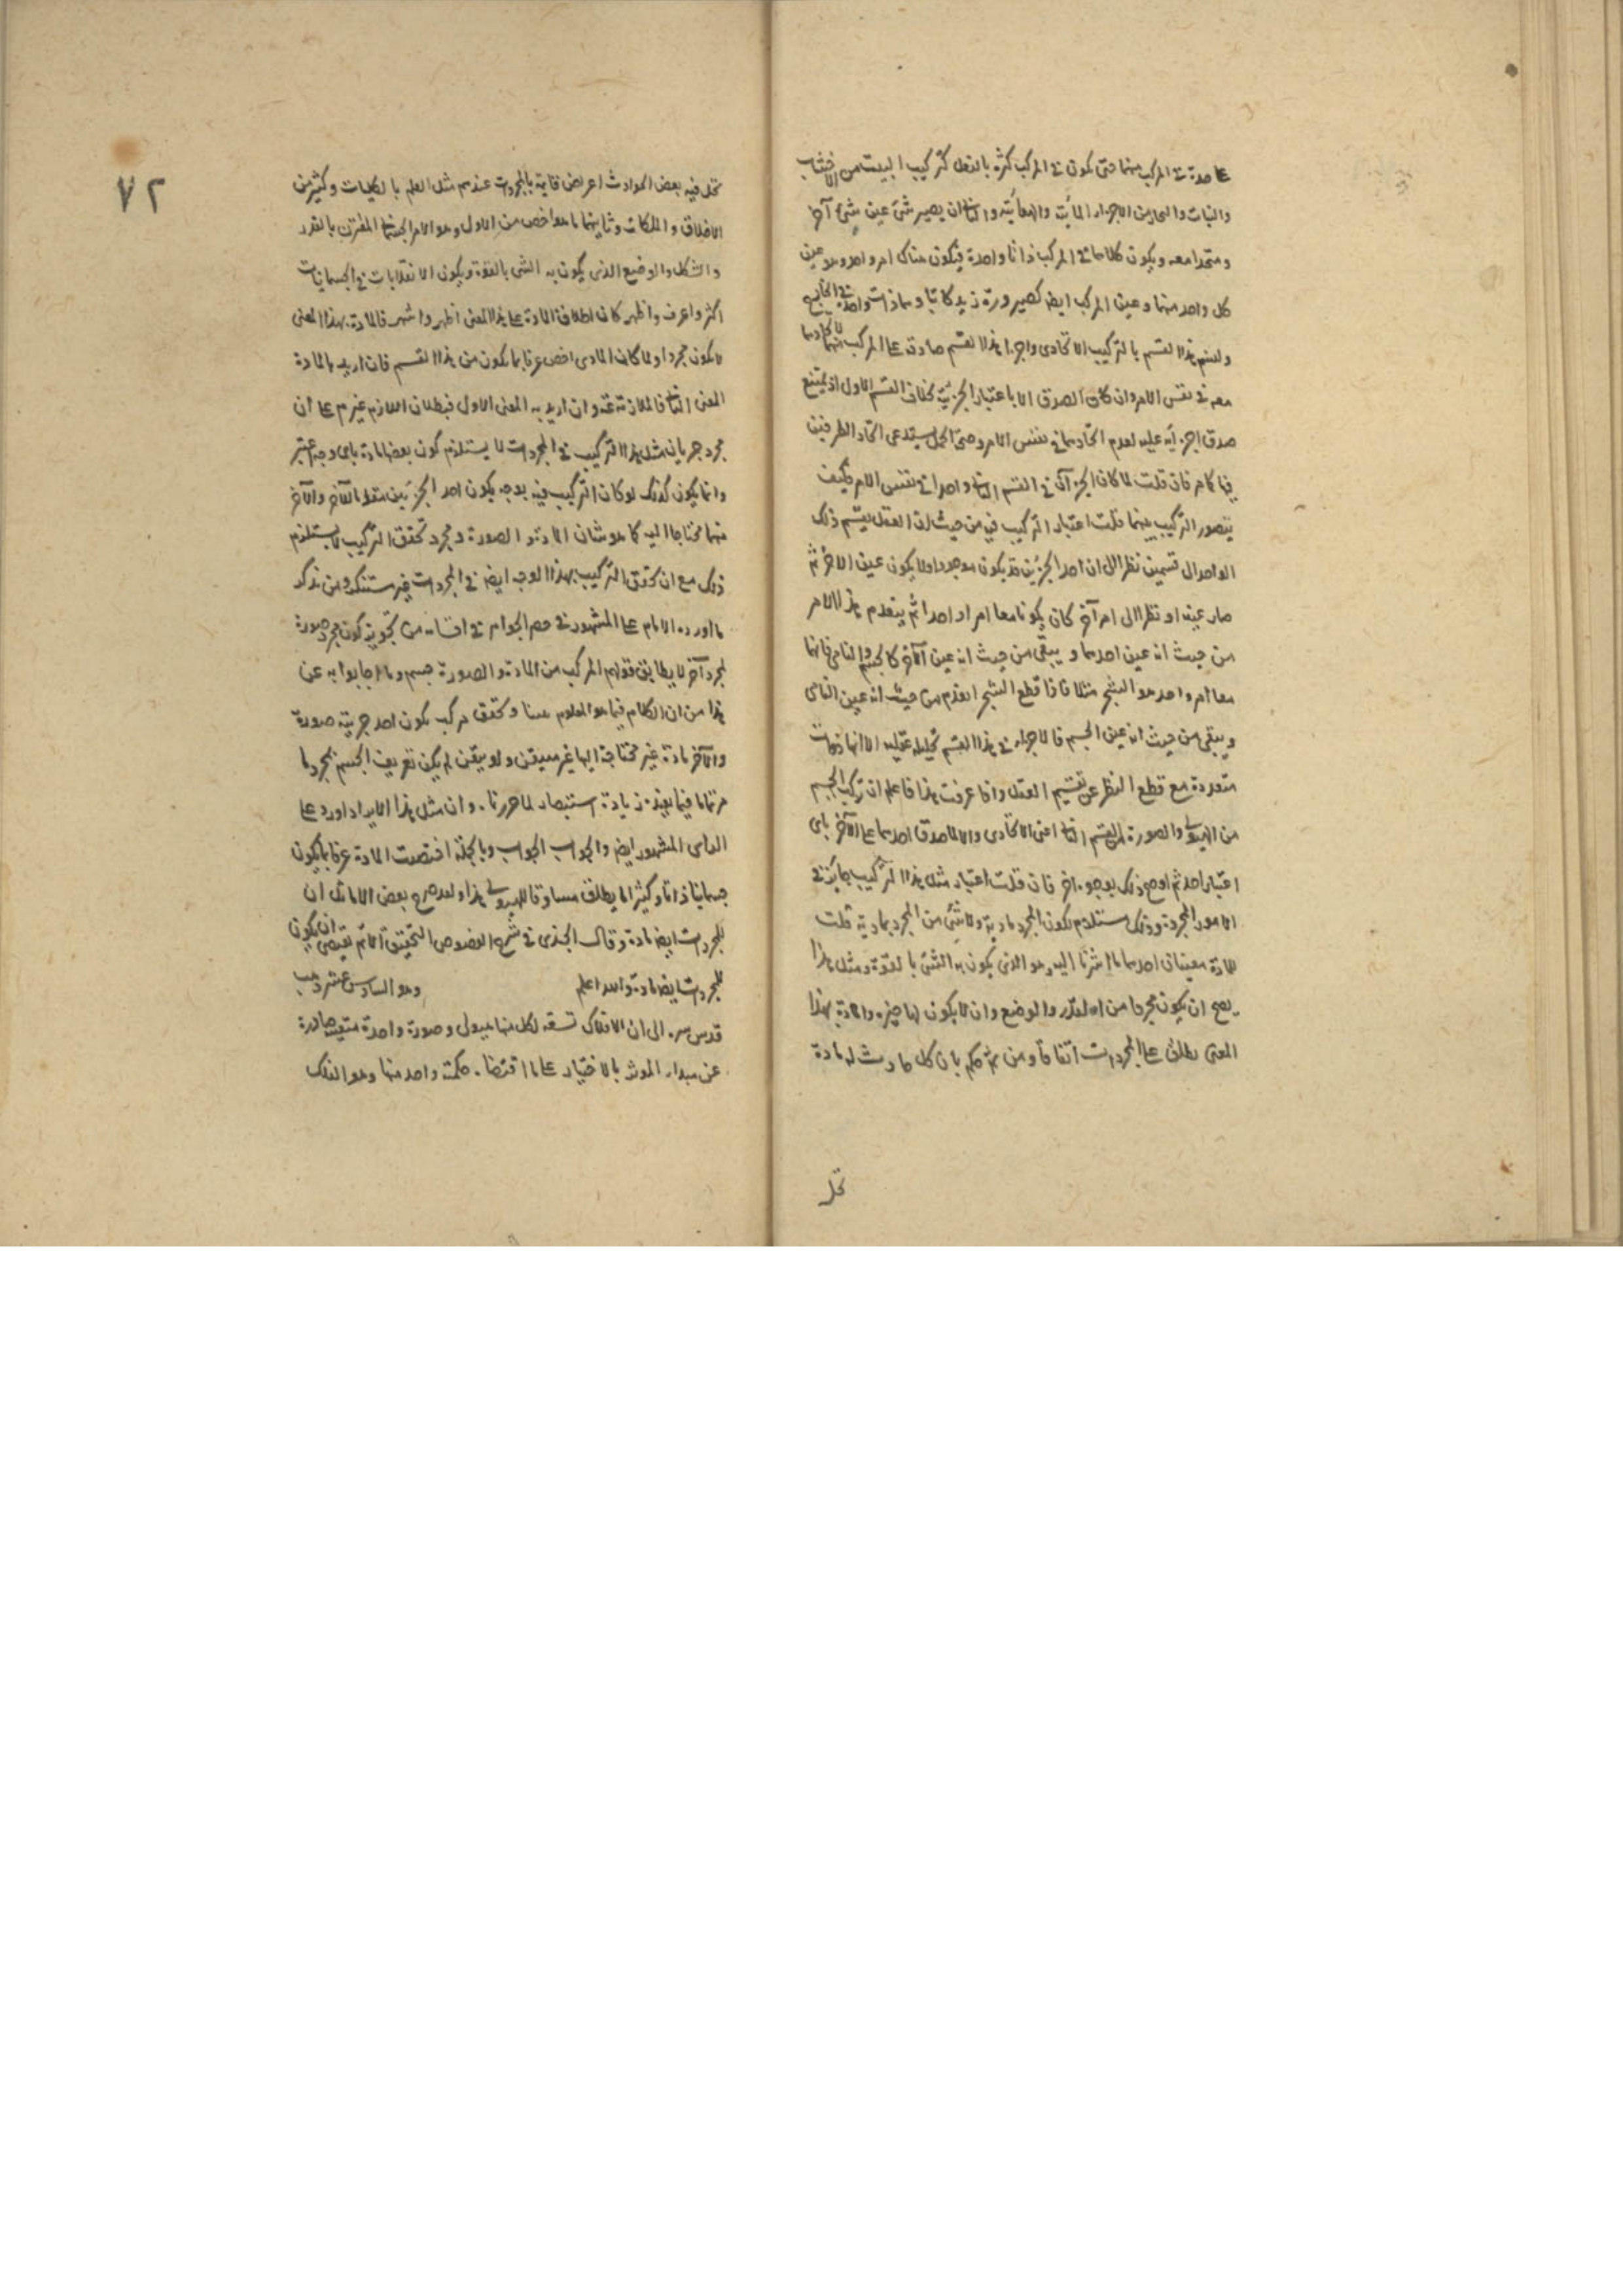 على حدة في المركب منهما حتى يكون في المركب كثرة بالفعل كتركيب البيت من الاخشاب
واللبنات والمعاجين من الاجزاء المائية والهوائية والثاني ان يصير شئ عين شئ آخر
ومتحدا معه ويكون كلاهما في المركب ذاتا واحدة فيكون هناك امر واحد وهو عين
كل واحد منهما وعين المركب ايضا كصيرورة زيد كاتبا وهما ذات واحدة في الخارج
ولنسم هذا القسم بالتركيب الاتحادى واجزاء هذا القسم صادقة على المركب منهما لاتحادهما
معه في نفس الامر وان كان الصدق لا باعتبار الجزئية بخلاف القسم الاول اذ يمتنع
صدق اجزائه عليه لعدم اتحادهما في نفس الامر وصحة الحمل يستدعى اتحاد الطرفين
فيها كما مر فان قلت لما كان الجزآن في القسم الثاني واحدا في نفس الامر فكيف
يتصور التركيب بينهما قلت اعتبار التركيب فيه من حيث ان العقل يقسم ذلك
الواحد الى قسمين نظرا الى ان احد الجزئين قد يكون موجودا ولا يكون عين الاخر ثم
صار عينه او نظرا الى امر آخر كان يكونا معا امرا واحدا ثم ينعدم هذا الامر
من حيث انه عين احدهما ويبقى من حيث انه عين الآخر كالجسم والنامى فانهما
معا امر واحد هو الشجر مثلا فاذا قطع الشجر انعدم من حيث انه عين النامى
ويبقى من حيث انه عين الجسم فالاجزاء في هذا القسم تحليلية عقلية لا انها ذوات
متعددة مع قطع النظر عن تقسيم العقل واذا عرفت هذا فاعلم ان تركيب الجسم
من الهيولى والصورة القسم الثاني اعنى الاتحادى والا لما صدق احدهما على الآخر باى
اعتبار اخذ ثم اوضح ذلك بوجوه اخر فان قلت اعتبار مثل هذا التركيب جائز في
الامور المجردة وذلك مستلزم لكون المجرد مادية ولا شئ من المجرد بمادية قلت
للمادة معنيان احدهما ما اشرنا اليه وهو الذى يكون به الشئ بالقوة ومثل هذا
يصح ان يكون مجردا من المقدار والوضع وان لا يكون لها حيز والمادة بهذا
المعنى يطلق على المجردات اتفاقا ومن ثم حكم بان كل حادث له مادة
تحل
٧٢
تحل فيه بعض الحوادث اعراض قائمة بالمجردات عندهم مثل العلم بالكليات وكثير من
الاخلاق والملكات وثانيهما ما هو اخص من الاول وهو الامر الجسماني المقترن بالقدر
والشكل والوضع الذى يكون به الشئ بالقوة ويكون الانقلابات في الجسمانيات
اكثر واعرف واظهر كان اطلاق المادة على هذا المعنى اظهر واشهر فالمادة بهذا المعنى
لا يكون مجردا ولما كان المادى اخص عرفا بما يكون من هذا القسم فان اريد بالمادة
المعنى الثاني فالملازمة منعه وان اريد به المعنى الاول فبطلان اللازم غير م على ان
مجرد جريان مثل هذا التركيب في المجردات لا يستلزم كون بعضها مادة باى وجه اعتبر
وانما يكون كذلك لو كان التركيب فيه بوجه يكون احد الجزئين متعلقا بالآخر والآخر
منهما محتاجا اليه كما هو شان المادة والصورة ومجرد تحقق التركيب لا يستلزم
ذلك مع ان تحقق التركيب بهذا الوجه ايضا في المجردات غير مستنكر ومن تذكر
ما اورده الامام على المشهور في حصر الجواهر في اقسامه من تجويز كون مجرد صورة
لمجرد آخر لا يطابق قولهم المركب من المادة والصورة جسم وما اجابوا به عن
هذا من ان الكلام فيما هو المعلوم عندنا وتحقق مركب يكون احد جزئيه صورة
والآخر مادة غير محتاجة اليها غير متيقن ولو تيقن لم يكن تعريف الجسم بمجردها
مرتماما فيما يفيده زيادة استبصار لما حررنا وان مثل هذا الايراد اورد على
الراى المشهور ايضا والجواب الجواب وبالجملة اختصت المادة عرفا بما يكون
جسمانيا ذاتا وكثيرا ما يطلق مساوقا للهيولى هذا ولقد صرح بعض الاماثل ان
للمجردات ايضا مادة وقال الجندى في شرح الفصوص التحقيق الاتم يقتضى ان يكون
للمجردات ايضا مادة والله اعلم وهو السادس عشر ذهب
قدس سره الى ان الافلاك تسعة لكل منها هيولى وصورة واحدة متعينة صادرة
عن مبدا المؤثر بالاختيار على ما اقتضاه حكمته واحد منها وهو الفلك